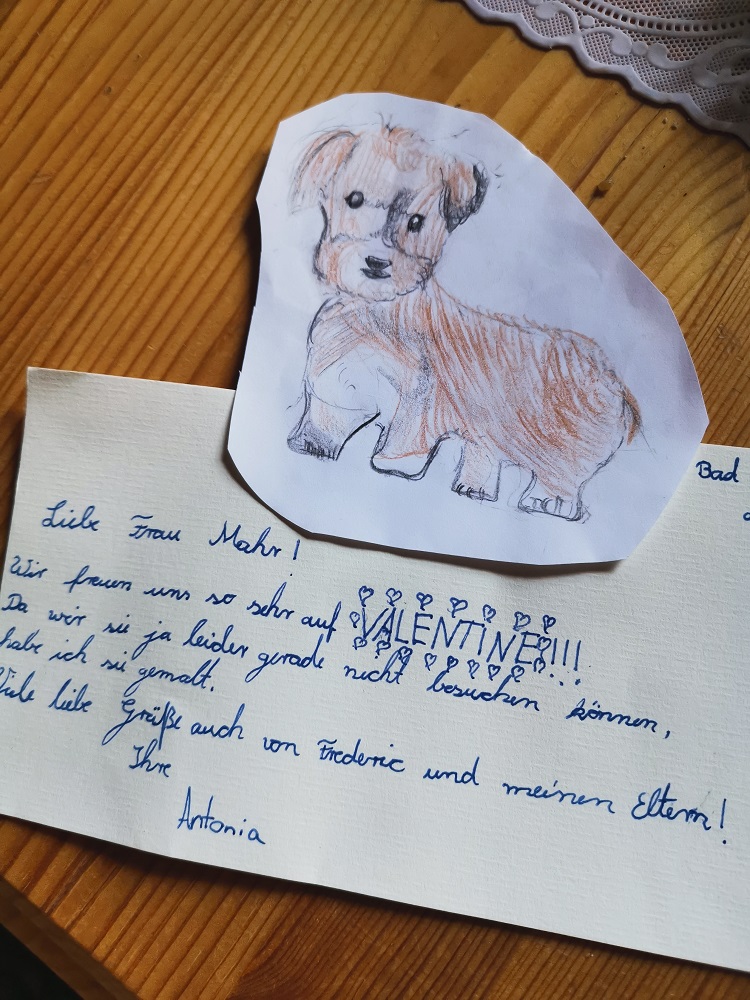 Bad
Liebe Frau Mahr!
Wir freuen uns so sehr auf VALENTINE!!!
Da wir sie ja leider gerade nicht besuchen können,
habe ich sie gemalt.
Viele liebe Grüße auch von Frederic und meinen Eltern!
Ihre
Antonia